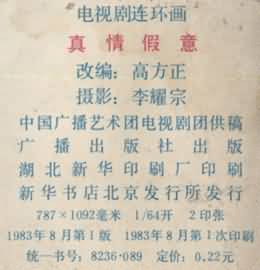 电视剧连环画
真情假意
改编：高方正
摄影：李耀宗
中国广播艺术团电视剧团供稿
广播出版社出版
湖北新华印刷厂印刷
新华书店北京发行所发行
787×1092毫米 1/64开 2印张
1983年8月第1版 1983年8月第1次印刷
统一书号：8236·089 定价：0.22元